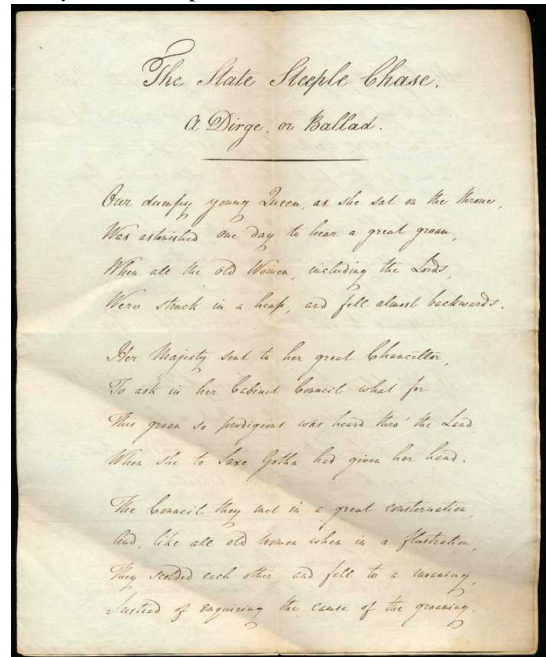 The State Steeple Chase.
A Dirge, or Ballad.
Our dumpy young Queen, as she sat on the throne,
Was astonished one day to hear a great groan,
When all the old Women, including the Lords,
Were struck in a heap, and fell almost backwards.
Her Majesty sent to her great Chancellor,
To ask in her Cabinet Council what for
This groan so prodigious was heard thro' the Land
When she to Saxe Gotha had given her hand.
The Council they met in a great consternation,
And, like all old women when in a flustration,
They scolded each other, and fell to a moaning,
Instead of enquiring the cause of the groaning.